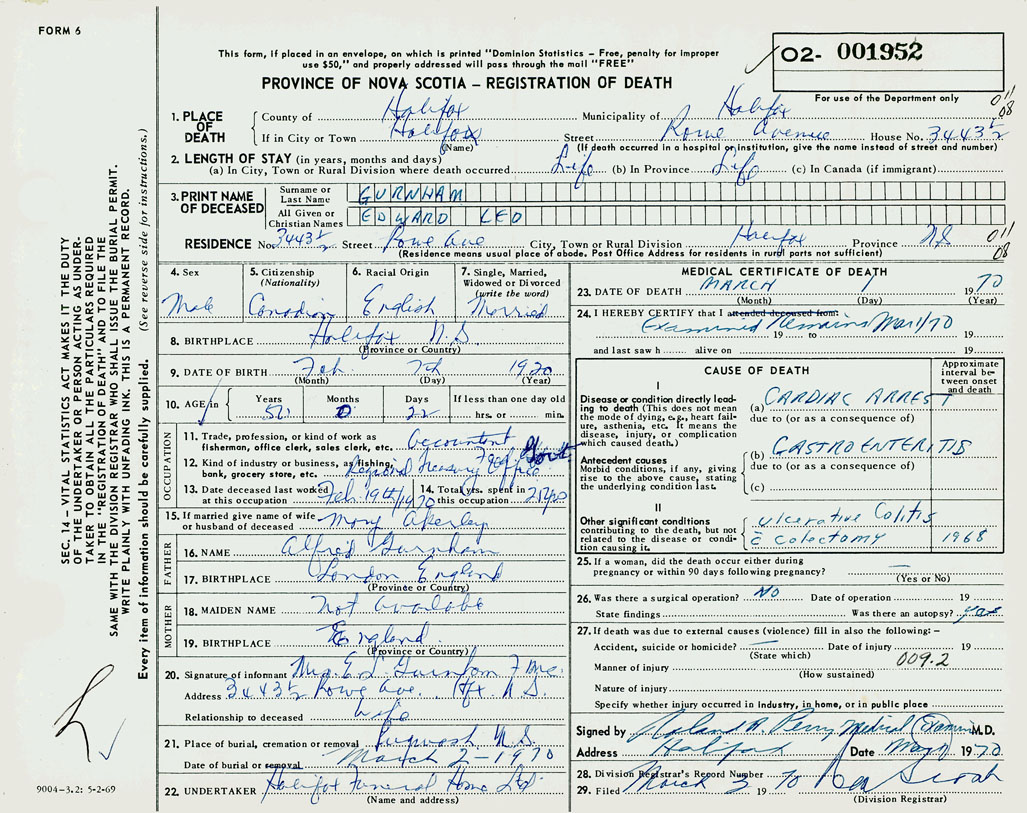 FORM 6
This form, if placed in an envelope, on which is printed "Dominion Statistics – Free, penalty for improper
use $50," and properly addressed will pass through the mail "FREE"
O2- 001952
For use of the Department only
PROVINCE OF NOVA SCOTIA – REGISTRATION OF DEATH
011
08
1. PLACE OF DEATH
County of Halifax Municipality of Halifax
If in City or Town Halifax Street Rowe Avenue House No. 3443½
(Name) (If death occurred in a hospital or institution, give the name instead of street and number)
2. LENGTH OF STAY (in years, months and days)
(a) In City, Town or Rural Division where death occurred Life (b) In Province Life (c) In Canada (if immigrant)
3. PRINT NAME OF DECEASED
Surname or Last Name GURNHAM
All Given or Christian Names EDWARD LEO
RESIDENCE No. 3443½ Street Rowe Ave City, Town or Rural Division Halifax Province N.S.
011
08
(Residence means usual place of abode. Post Office Address for residents in rural parts not sufficient)
4. Sex
Male
5. Citizenship
(Nationality)
Canadian
6. Racial Origin
English
7. Single, Married,
Widowed or Divorced
(write the word)
Married
8. BIRTHPLACE Halifax N.S.
(Province or Country)
9. DATE OF BIRTH Feb. 7th 1920
(Month) (Day) (Year)
10. AGE in
Years Months Days If less than one day old
50 0 22 hrs. or min.
OCCUPATION
11. Trade, profession, or kind of work as
fisherman, office clerk, sales clerk, etc. Accountant
12. Kind of industry or business, as fishing,
bank, grocery store, etc. Regional Treasury Office Govt.
13. Date deceased last worked
at this occupation Feb 19th/1970
14. Total yrs. spent in
this occupation 25 yrs
15. If married give name of wife
or husband of deceased Mary Akerley
FATHER
16. NAME Alfred Gurnham
17. BIRTHPLACE London England
(Province or Country)
MOTHER
18. MAIDEN NAME Not Available
19. BIRTHPLACE England
(Province or Country)
20. Signature of informant Mrs. E. L. Gurnham
Address 3443½ Rowe Ave. Hfx N.S.
Relationship to deceased wife
21. Place of burial, cremation or removal Pugwash N.S.
Date of burial or removal March 2 - 1970
22. UNDERTAKER Halifax Funeral Home Ltd.
(Name and address)
MEDICAL CERTIFICATE OF DEATH
23. DATE OF DEATH MARCH 1 1970
(Month) (Day) (Year)
24. I HEREBY CERTIFY that I attended deceased from:
Examined Remains Mar 1/70
19 to 19
and last saw h alive on 19
CAUSE OF DEATH
Approximate
interval be-
tween onset
and death
I
Disease or condition directly lead-
ing to death (This does not mean
the mode of dying, e.g., heart fail-
ure, asthenia, etc. It means the
disease, injury, or complication
which caused death.)
(a) CARDIAC ARREST
due to (or as a consequence of)
Antecedent causes
Morbid conditions, if any, giving
rise to the above cause, stating
the underlying condition last.
(b) GASTROENTERITIS
due to (or as a consequence of)
(c)
II
Other significant conditions
contributing to the death, but not
related to the disease or condi-
tion causing it.
Ulcerative Colitis
c̄ Colectomy 1968
25. If a woman, did the death occur either during
pregnancy or within 90 days following pregnancy?
(Yes or No)
26. Was there a surgical operation? NO Date of operation 19
State findings Was there an autopsy? yes
27. If death was due to external causes (violence) fill in also the following: –
Accident, suicide or homicide? Date of injury 19
(State which)
009.2
Manner of injury
(How sustained)
Nature of injury
Specify whether injury occurred in Industry, in home, or in public place
Signed by Roland A. Perry Medical Examiner M.D.
Address Halifax Date 1970
28. Division Registrar's Record Number
29. Filed March 3 1970
(Division Registrar)
SEC. 14 – VITAL STATISTICS ACT MAKES IT THE DUTY
OF THE UNDERTAKER OR PERSON ACTING AS UNDER-
TAKER TO OBTAIN ALL THE PARTICULARS REQUIRED
IN THE "REGISTRATION OF DEATH" AND TO FILE THE
SAME WITH THE DIVISION REGISTRAR WHO SHALL ISSUE THE BURIAL PERMIT.
WRITE PLAINLY WITH UNFADING INK. THIS IS A PERMANENT RECORD.
Every item of information should be carefully supplied. (See reverse side for instructions.)
9004-3.2: 5-2-69